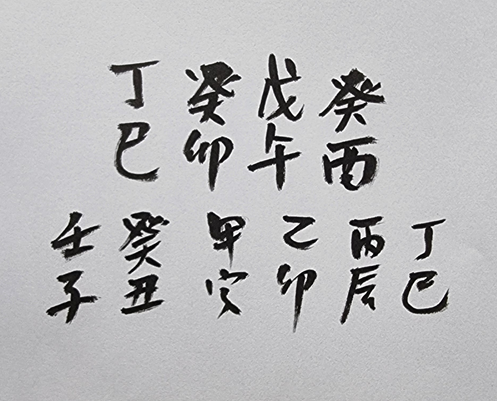 丁癸戊癸
巳卯午酉
壬癸甲乙丙丁
子丑寅卯辰巳